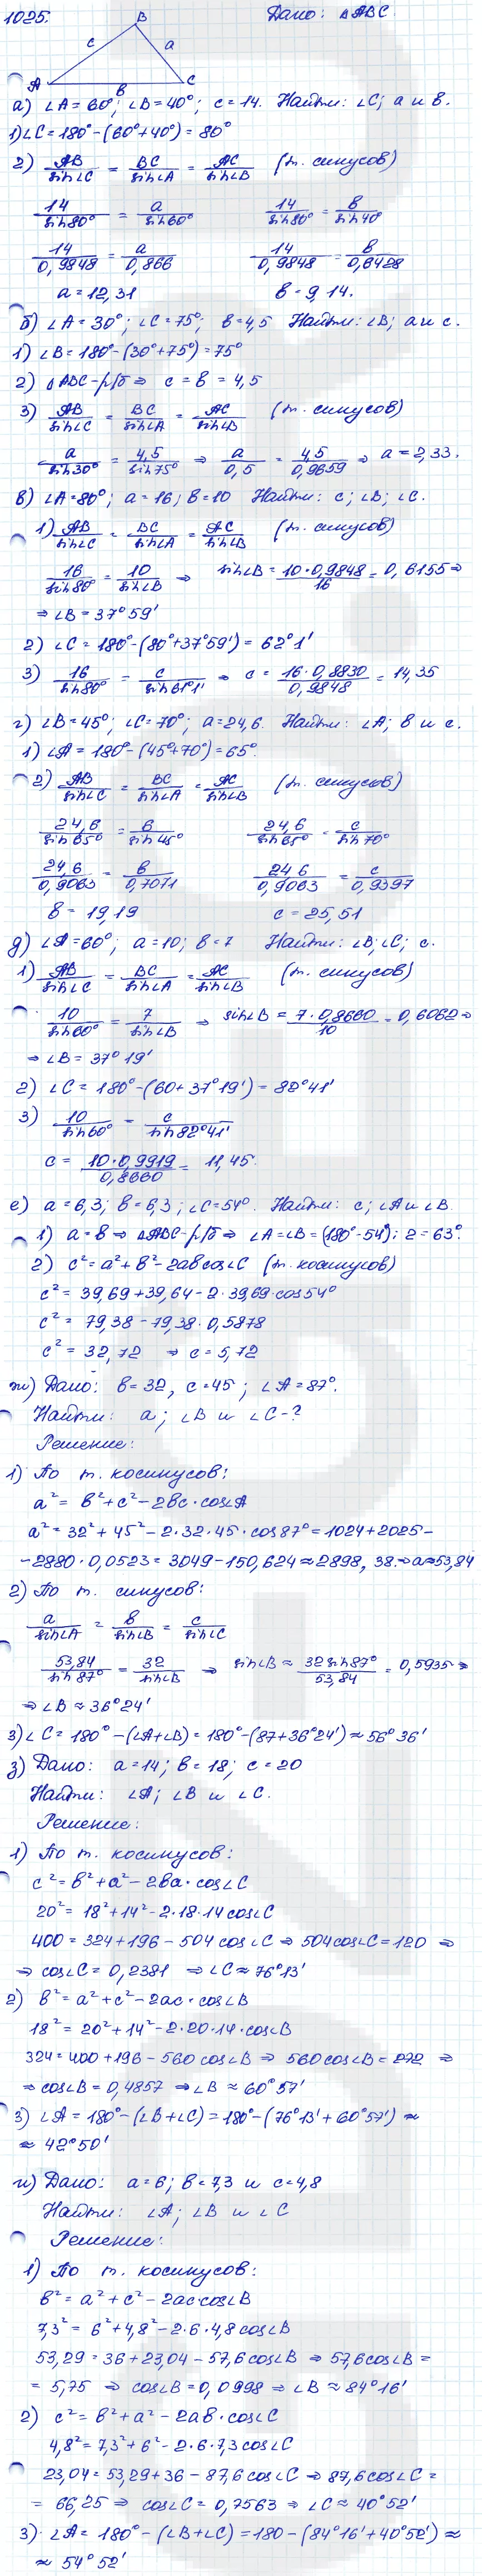 1025.
Дано: △ABC.
B
c
a
A
в
C
а) ∠A = 60°; ∠B = 40°; c = 14. Найти: ∠C; a и в.
1) ∠C = 180° - (60° + 40°) = 80°
2) AB/sin∠C = BC/sin∠A = AC/sin∠B (т. синусов)
14/sin80° = a/sin60° 14/sin80° = в/sin40°
14/0,9848 = a/0,866 14/0,9848 = в/0,6428
a = 12,31 в = 9,14.
б) ∠A = 30°; ∠C = 75°; в = 4,5 Найти: ∠B; a и c.
1) ∠B = 180° - (30° + 75°) = 75°
2) △ABC - р/б ⇒ c = в = 4,5
3) AB/sin∠C = BC/sin∠A = AC/sin∠B (т. синусов)
a/sin30° = 4,5/sin75° ⇒ a/0,5 = 4,5/0,9659 ⇒ a = 2,33.
в) ∠A = 80°; a = 16; в = 10 Найти: c; ∠B; ∠C.
1) AB/sin∠C = BC/sin∠A = AC/sin∠B (т. синусов)
16/sin80° = 10/sin∠B ⇒ sin∠B = 10·0,9848/16 = 0,6155 ⇒
⇒ ∠B = 37°59'
2) ∠C = 180° - (80° + 37°59') = 62°1'
3) 16/sin80° = c/sin61°1' ⇒ c = 16·0,8830/0,9848 = 14,35
г) ∠B = 45°; ∠C = 70°; a = 24,6. Найти: ∠A; в и c.
1) ∠A = 180° - (45° + 70°) = 65°.
2) AB/sin∠C = BC/sin∠A = AC/sin∠B (т. синусов)
24,6/sin65° = в/sin45° 24,6/sin65° = c/sin70°
24,6/0,9063 = в/0,7071 24,6/0,9063 = c/0,9397
в = 19,19 c = 25,51
д) ∠A = 60°; a = 10; в = 7 Найти: ∠B; ∠C; c.
1) AB/sin∠C = BC/sin∠A = AC/sin∠B (т. синусов)
10/sin60° = 7/sin∠B ⇒ sin∠B = 7·0,8660/10 = 0,6062 ⇒
⇒ ∠B = 37°19'
2) ∠C = 180° - (60 + 37°19') = 82°41'
3) 10/sin60° = c/sin82°41'
c = 10·0,9919/0,8660 = 11,45.
е) a = 6,3; в = 6,3; ∠C = 54°. Найти: c; ∠A и ∠B.
1) a = в ⇒ △ABC - р/б ⇒ ∠A = ∠B = (180° - 54°) : 2 = 63°.
2) c² = a² + в² - 2aвcos∠C (т. косинусов)
c² = 39,69 + 39,64 - 2·39,69·cos54°
c² = 79,38 - 79,38·0,5878
c² = 32,72 ⇒ c = 5,72
ж) Дано: в = 32, c = 45; ∠A = 87°.
Найти: a; ∠B и ∠C - ?
Решение:
1) По т. косинусов:
a² = в² + c² - 2вc·cos∠A
a² = 32² + 45² - 2·32·45·cos87° = 1024 + 2025 -
- 2880·0,0523 = 3049 - 150,624 ≈ 2898,38. ⇒ a ≈ 53,84
2) По т. синусов:
a/sin∠A = в/sin∠B = c/sin∠C
53,84/sin87° = 32/sin∠B ⇒ sin∠B ≈ 32sin87°/53,84 = 0,5935 ⇒
⇒ ∠B ≈ 36°24'
3) ∠C = 180° - (∠A + ∠B) = 180° - (87 + 36°24') ≈ 56°36'
з) Дано: a = 14; в = 18; c = 20
Найти: ∠A; ∠B и ∠C.
Решение:
1) По т. косинусов:
c² = в² + a² - 2вa·cos∠C
20² = 18² + 14² - 2·18·14cos∠C
400 = 324 + 196 - 504cos∠C ⇒ 504cos∠C = 120 ⇒
⇒ cos∠C = 0,2381 ⇒ ∠C ≈ 76°13'
2) в² = a² + c² - 2ac·cos∠B
18² = 20² + 14² - 2·20·14·cos∠B
324 = 400 + 196 - 560cos∠B ⇒ 560cos∠B = 272 ⇒
⇒ cos∠B = 0,4857 ⇒ ∠B ≈ 60°57'
3) ∠A = 180° - (∠B + ∠C) = 180° - (76°13' + 60°57') ≈
≈ 42°50'
и) Дано: a = 6; в = 7,3 и c = 4,8
Найти: ∠A; ∠B и ∠C
Решение:
1) По т. косинусов:
в² = a² + c² - 2ac·cos∠B
7,3² = 6² + 4,8² - 2·6·4,8cos∠B
53,29 = 36 + 23,04 - 57,6cos∠B ⇒ 57,6cos∠B =
= 5,75 ⇒ cos∠B = 0,0998 ⇒ ∠B ≈ 84°16'
2) c² = в² + a² - 2aв·cos∠C
4,8² = 7,3² + 6² - 2·6·7,3cos∠C
23,04 = 53,29 + 36 - 87,6cos∠C ⇒ 87,6cos∠C =
= 66,25 ⇒ cos∠C = 0,7563 ⇒ ∠C ≈ 40°52'
3) ∠A = 180° - (∠B + ∠C) = 180 - (84°16' + 40°52') ≈
≈ 54°52'